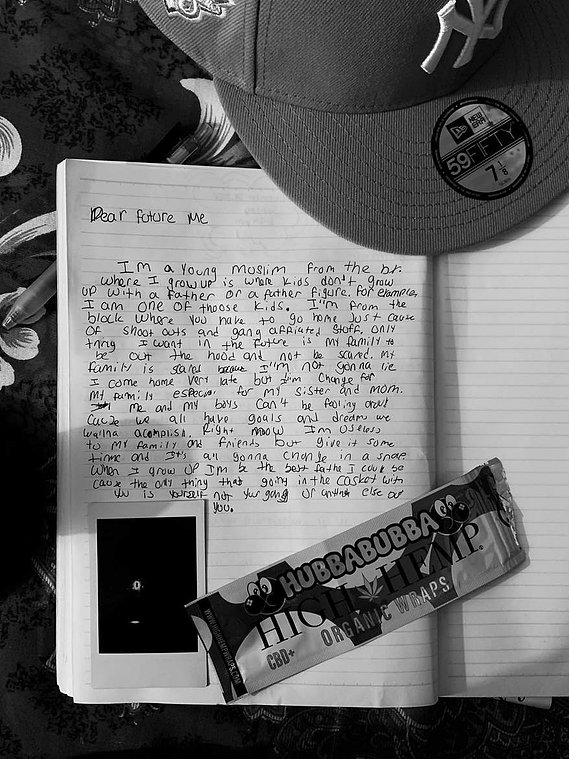 NY
NEW ERA
59FIFTY
7 1/8
Dear future me
I'm a young muslim from the bx.
where I grow up is where kids don't grow
up with a father or a father figure. For example,
I am one of thoose kids. I'm from the
block where you have to go home Just cause
of shoot outs and gang affiliated stuff. Only
thing I want in the future is my family to
be out the hood and not be scared. My
family is scared because I'm not gonna lie
I come home very late but I'm change for
my family especial for my sister and mom.
me and my boys can't be fooling around
cause we all have goals and dreams we
wanna acomplish. Right now I'm useless
to my family and friends but give it some
time and It's all gonna change in a snap
when I grow up I'm be the best father I could be
cause the only thing that going in the casket with
you is yourself not your gang or else our
you.
HUBBABUBBA
HIGH HEMP
ORGANIC WRAPS
CBD+